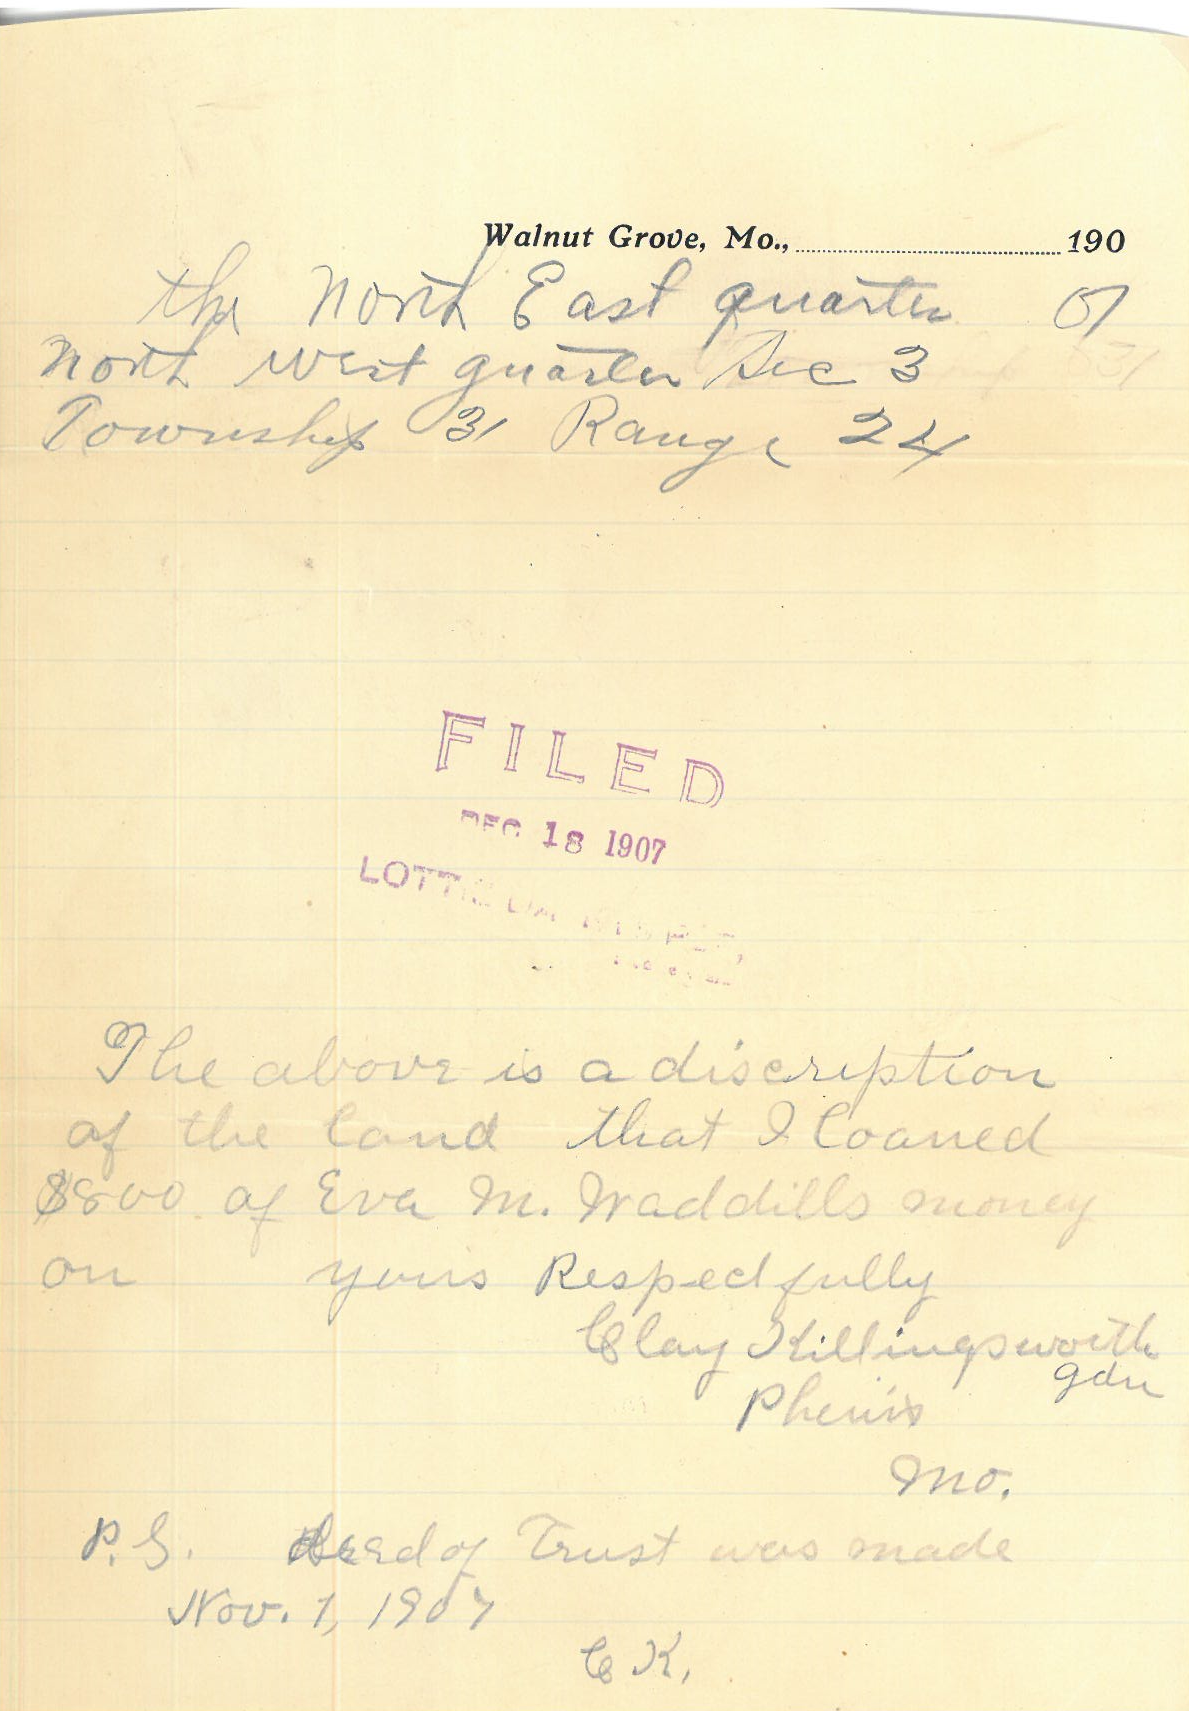 Walnut Grove, Mo., 190
the North East quarter of
North West quarter Sec 3
Township 31 Range 24
FILED
DEC 18 1907
The above is a discription
of the land that I loaned
$800. of Eva M. Waddills money
on yours Respectfully
Clay Killingsworth
gdn
Phenix
Mo.
P.S. Deed of Trust was made
Nov. 1, 1907
C K.